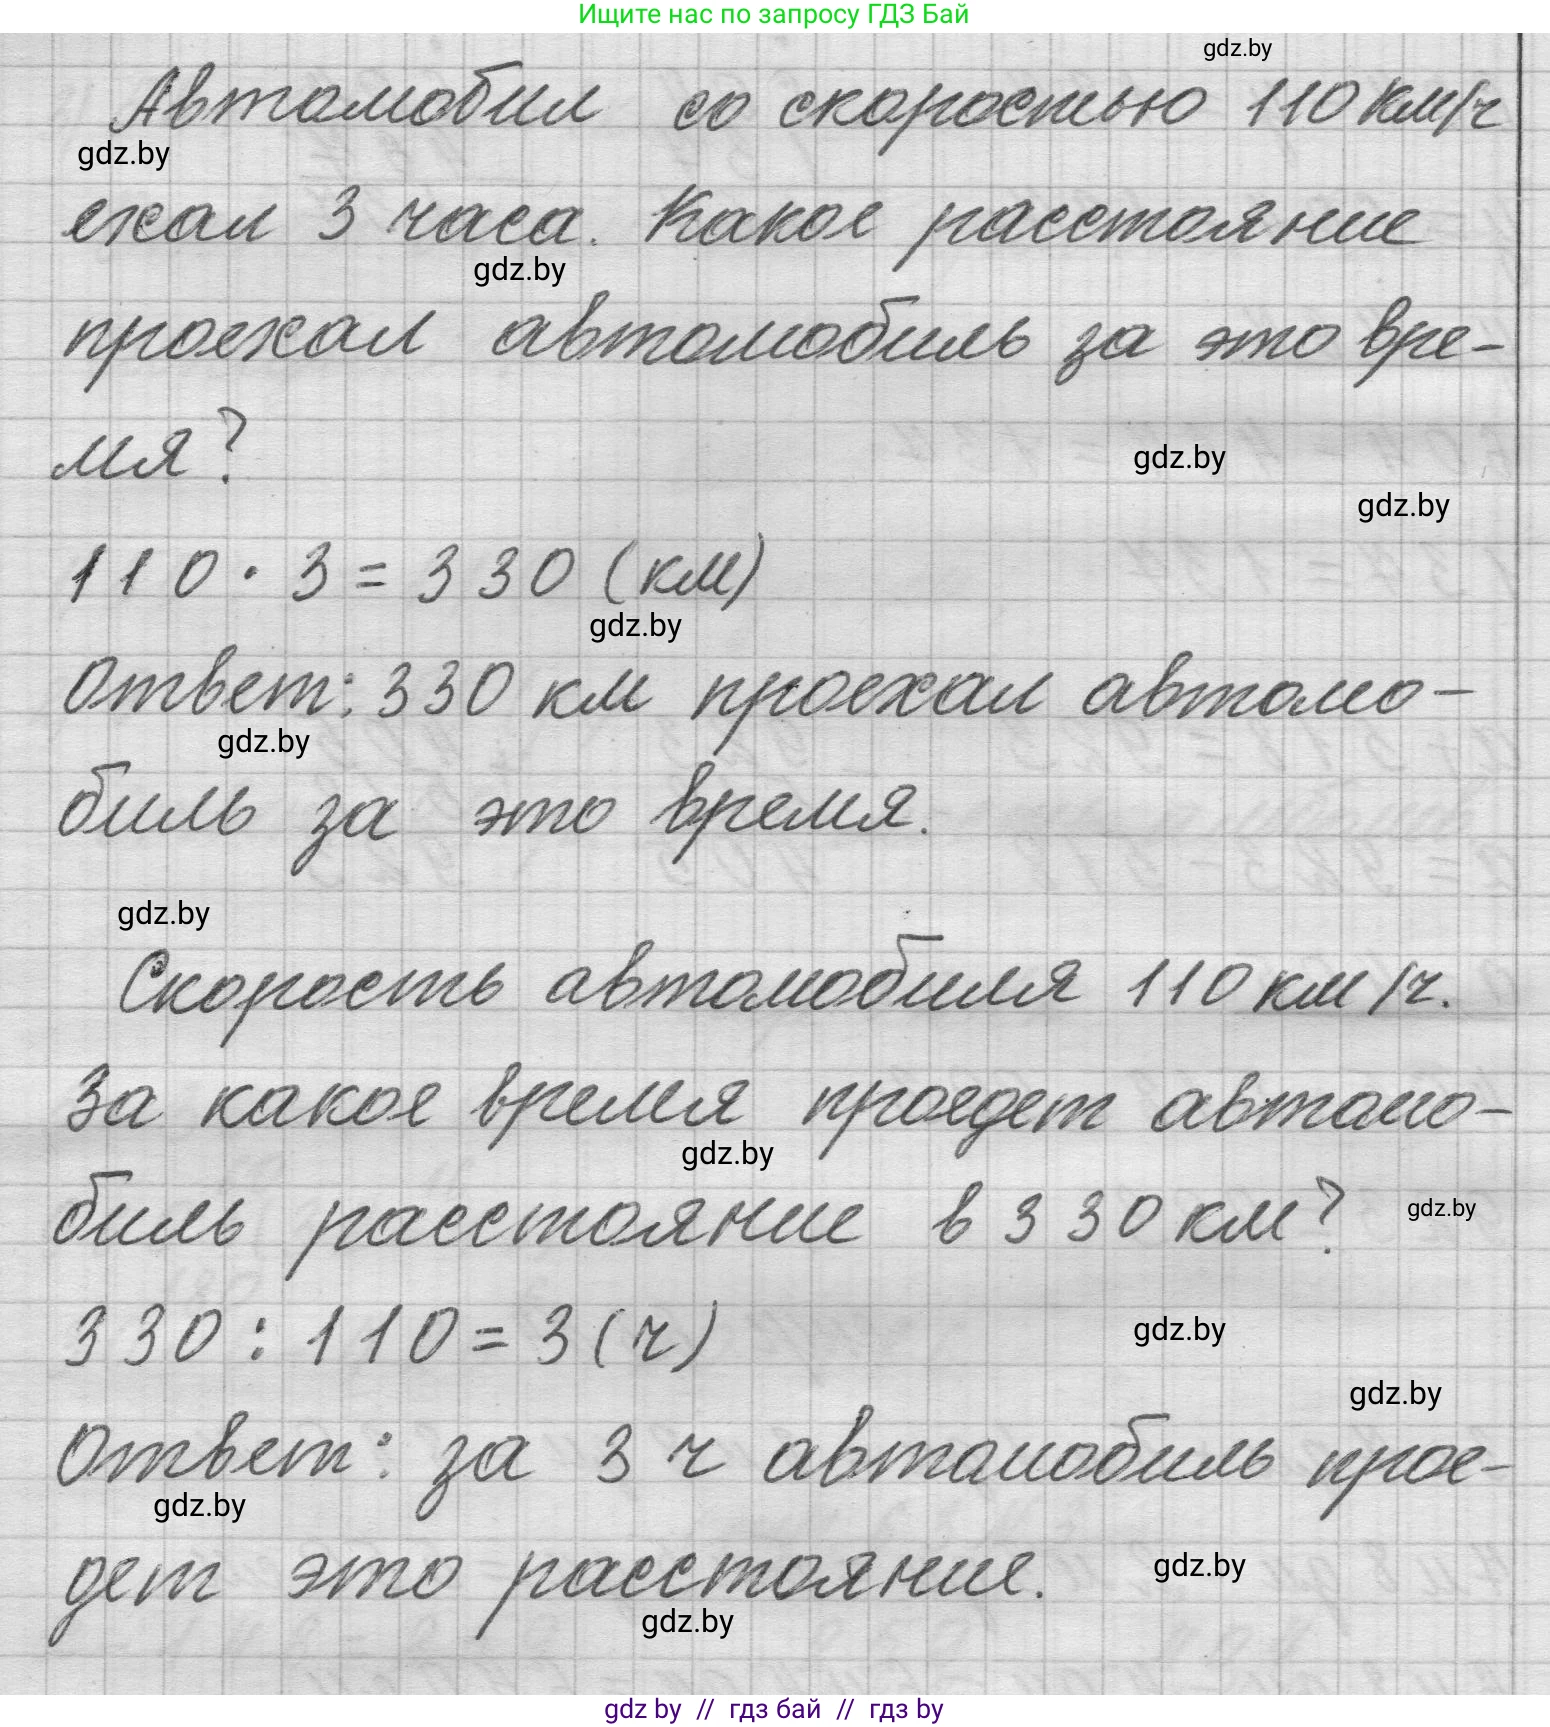 Ищите нас по запросу ГДЗ Бай
gdz.by
Автомобил со скоростью 110 км/ч
gdz.by
ехал 3 часа. Какое расстояние
gdz.by
проехал автомобиль за это вре-
мя?
gdz.by
gdz.by
110 · 3 = 330 (км)
gdz.by
Ответ: 330 км проехал автомо-
gdz.by
биль за это время.
gdz.by
Скорость автомобиля 110 км/ч.
За какое время проедет автомо-
gdz.by
биль расстояние в 330 км?
gdz.by
330 : 110 = 3 (ч)
gdz.by
gdz.by
Ответ: за 3 ч автомобиль прое-
gdz.by
дет это расстояние.
gdz.by
gdz.by
gdz by // гдз бай // гдз by